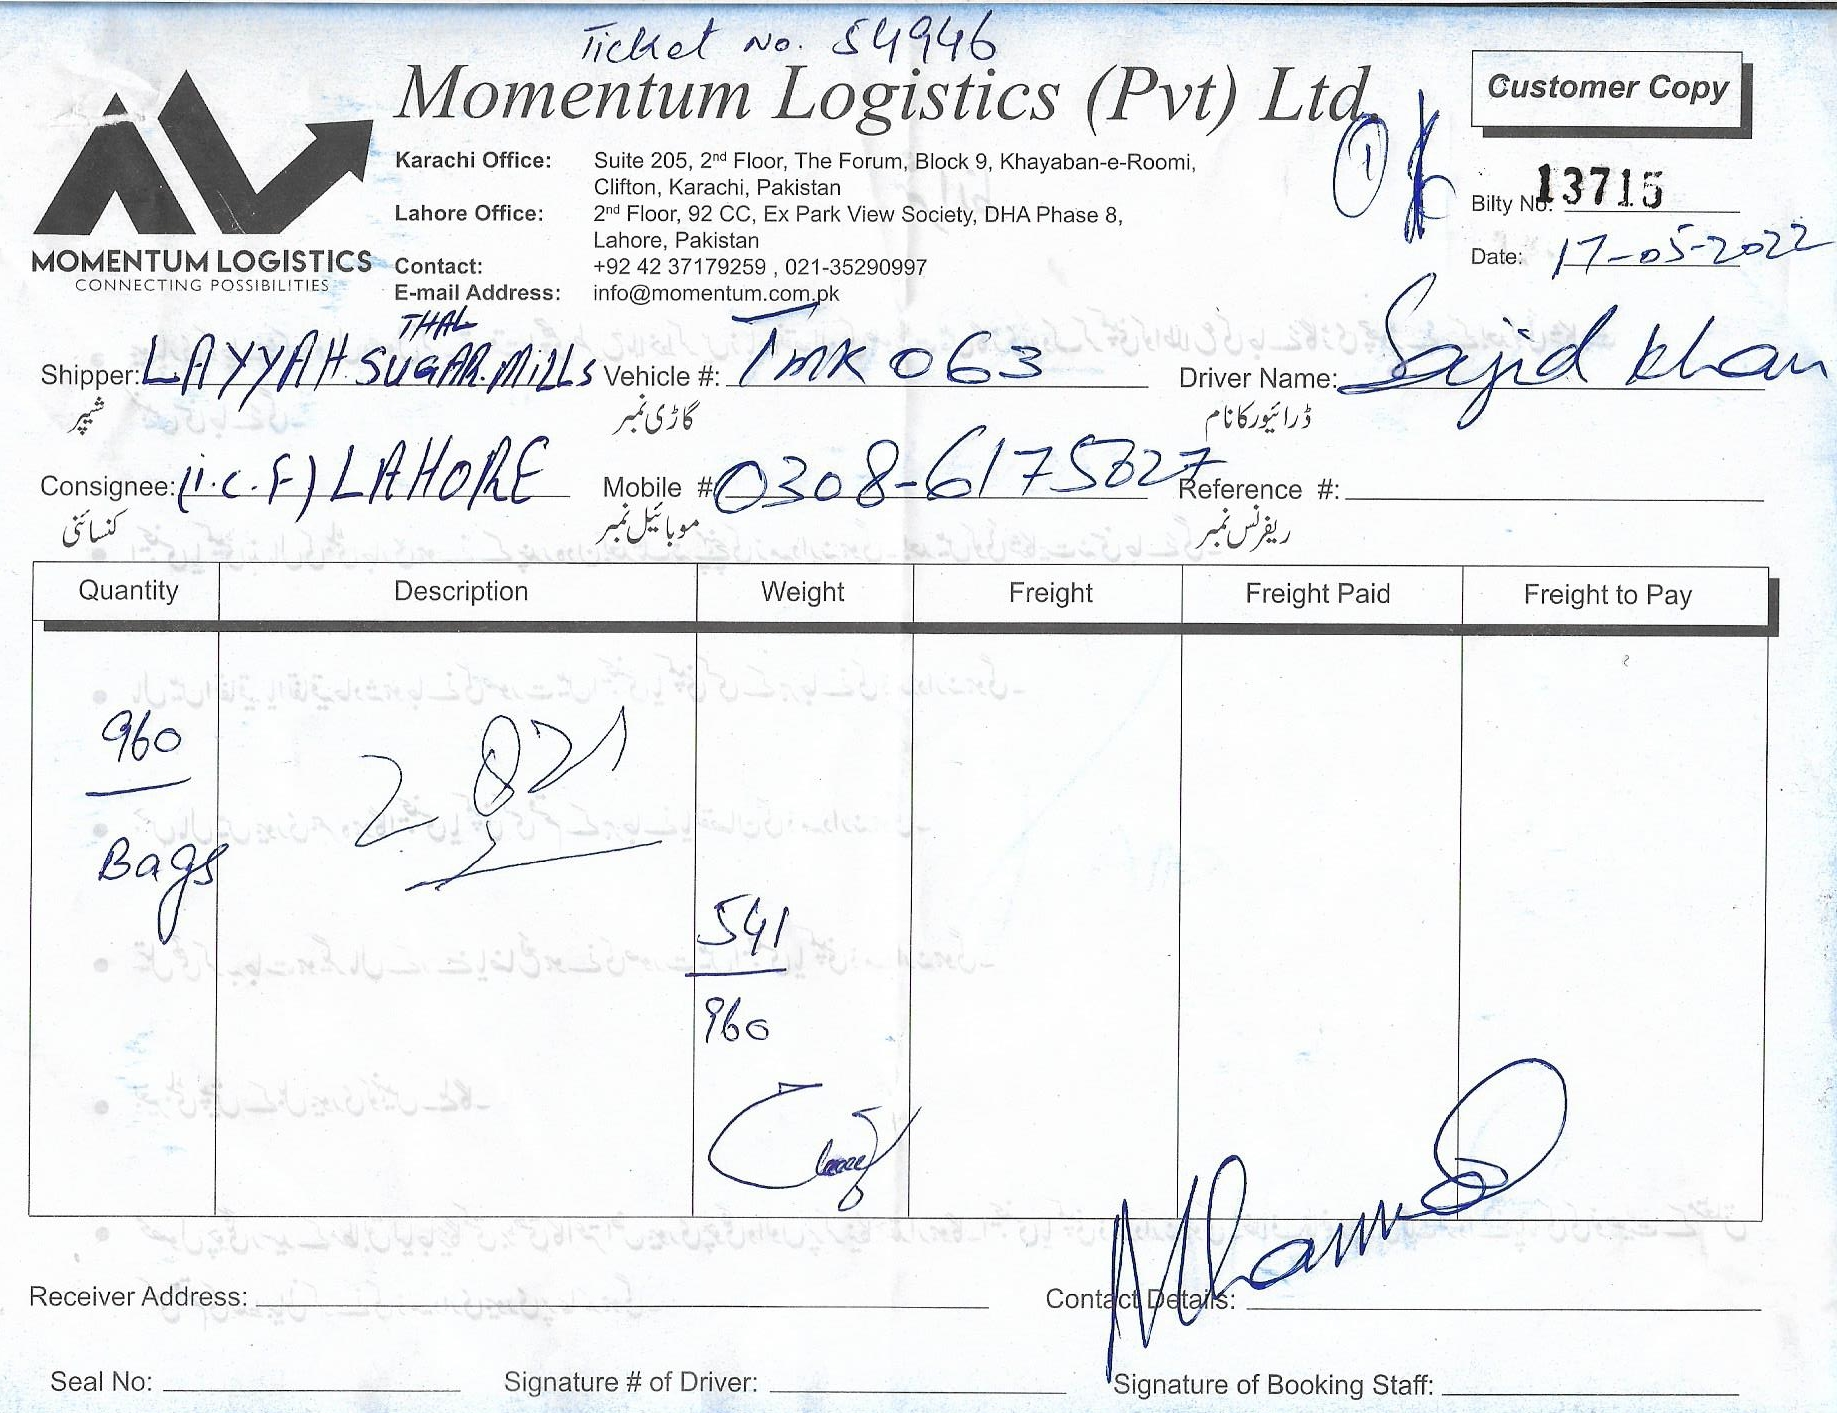 Ticket No. 54946
Momentum Logistics (Pvt) Ltd.
Customer Copy
MOMENTUM LOGISTICS
CONNECTING POSSIBILITIES
Karachi Office: Suite 205, 2nd Floor, The Forum, Block 9, Khayaban-e-Roomi,
Clifton, Karachi, Pakistan
Lahore Office: 2nd Floor, 92 CC, Ex Park View Society, DHA Phase 8,
Lahore, Pakistan
Contact: +92 42 37179259 , 021-35290997
E-mail Address: info@momentum.com.pk
1
Bilty No: 13715
Date: 17-05-2022
THAL
Shipper: LAYYAH SUGAR MILLS Vehicle #: TMK 063 Driver Name: Sajid Khan
شیپر گاڑی نمبر ڈرائیور کا نام
Consignee: (I.C.F) LAHORE Mobile # 0308-6175027 Reference #:
کنسائنی موبائیل نمبر ریفرنس نمبر
Quantity Description Weight Freight Freight Paid Freight to Pay
960
Bags
541
960
Receiver Address: Contact Details:
Seal No: Signature # of Driver: Signature of Booking Staff: